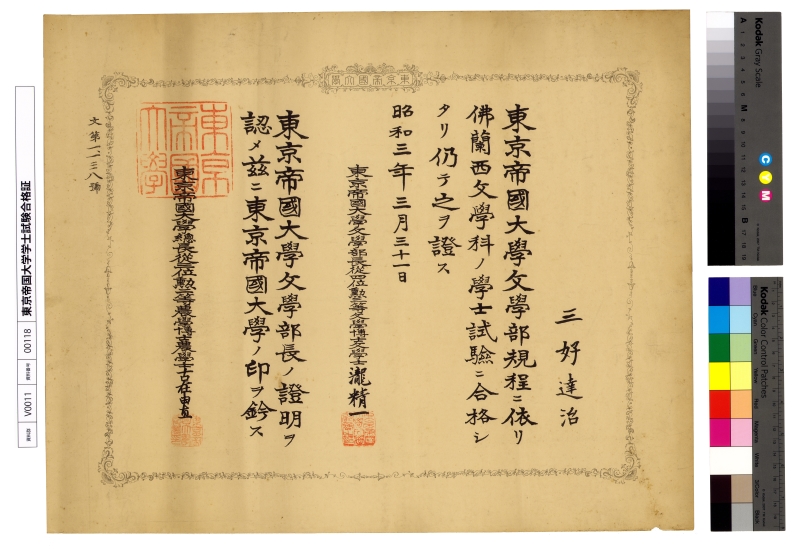 東京帝國大學
三好達治
東京帝國大學文學部規程ニ依リ
佛蘭西文學科ノ學士試驗ニ合格シ
タリ仍テ之ヲ證ス
昭和三年三月三十一日
東京帝國大學文學部長從四位勲三等文學博士文學士瀧精一
東京帝國大學文學部長ノ證明ヲ
認メ茲ニ東京帝國大學ノ印ヲ鈐ス
東京帝國大學總長從二位勲二等農學博士農學士古在由直
文第一二三八號
東京帝国大学学士試験合格証
00118
V0011
Kodak Gray Scale
A 1 2 3 4 5 6 M 8 9 10 11 12 13 14 15 B 17 18 19
C Y M
Kodak Color Control Patches
Blue
Cyan
Green
Yellow
Red
Magenta
White
3/Color
Black